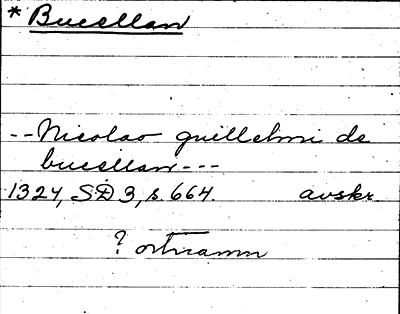 * Bucellan
-- Nicolao guillelmi de
bucellan ---
1324, SD 3, s. 664. avskr.
? ortnamn